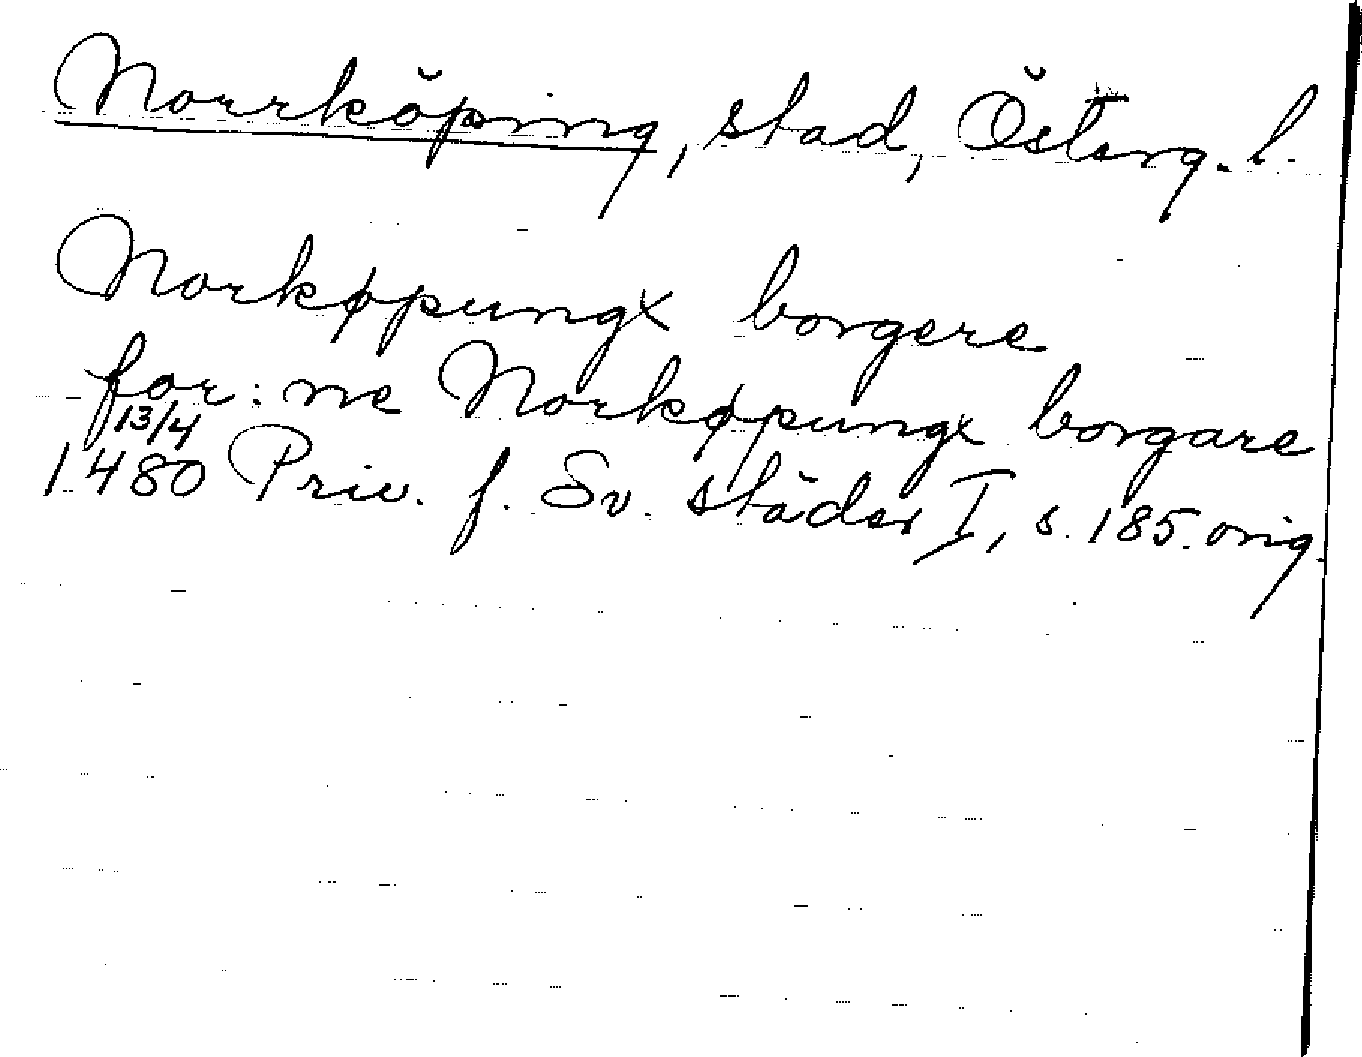 Norrköping, stad, Österg. l.
Norkøpungx borgere
for: ne Norkøpungx borgare
13/4
1480 Priv. f. Sv. städer I, s. 185. orig.